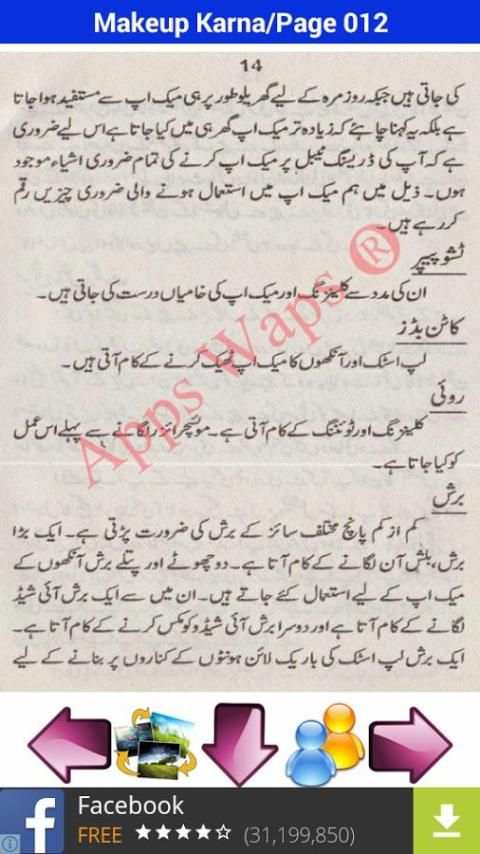 Makeup Karna/Page 012
14
کی جاتی ہیں جبکہ روز مرہ کے لیے گھریلو طور پر ہی میک اپ سے مستفید ہوا جاتا
ہے بلکہ یہ کہنا چاہئے کہ زیادہ تر میک اپ گھر ہی میں کیا جاتا ہے اس لیے ضروری
ہے کہ آپ کی ڈریسنگ ٹیبل پر میک اپ کرنے کی تمام ضروری اشیاء موجود
ہوں۔ ذیل میں ہم میک اپ میں استعمال ہونے والی ضروری چیزیں رقم
کر رہے ہیں۔
ٹشو پیپر
ان کی مدد سے کلینزنگ اور میک اپ کی خامیاں درست کی جاتی ہیں۔
کاٹن بڈز
لپ اسٹک اور آنکھوں کا میک اپ ٹھیک کرنے کے کام آتی ہیں۔
روئی
کلینزنگ اور ٹوننگ کے کام آتی ہے۔ موئسچرائزر لگانے سے پہلے اس عمل
کو کیا جاتا ہے۔
برش
کم از کم پانچ مختلف سائز کے برش کی ضرورت پڑتی ہے۔ ایک بڑا
برش، بلش آن لگانے کے کام آتا ہے۔ دو چھوٹے اور پتلے برش آنکھوں کے
میک اپ کے لیے استعمال کئے جاتے ہیں۔ ان میں سے ایک برش آئی شیڈ
لگانے کے کام آتا ہے اور دوسرا برش آئی شیڈو کو مکس کرنے کے کام آتا ہے۔
ایک برش لپ اسٹک کی باریک لائن ہونٹوں کے کناروں پر بنانے کے لیے
Apps Waps ®
Facebook
FREE (31,199,850)